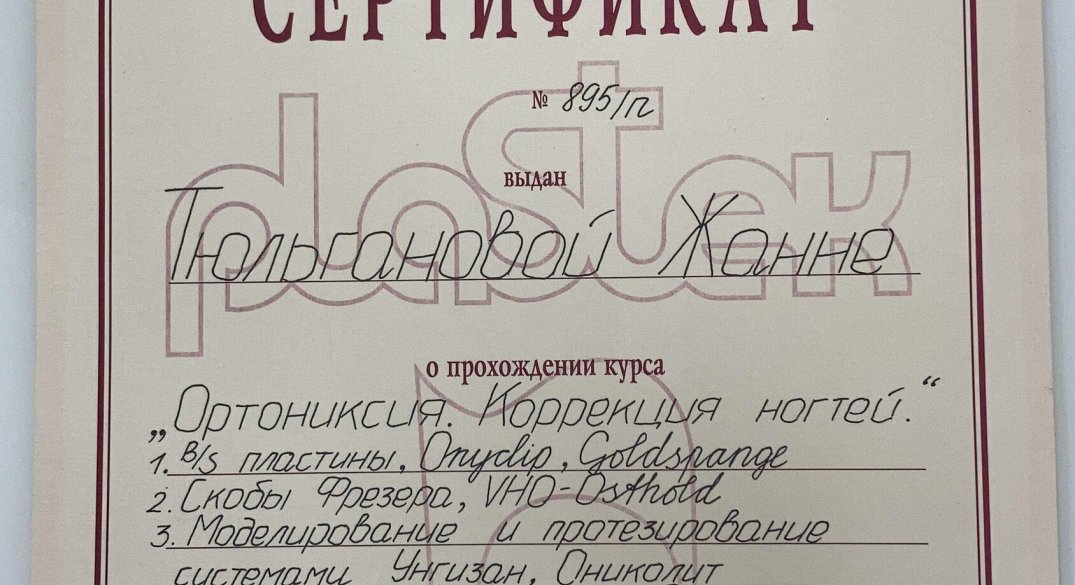 СЕРТИФИКАТ
№ 895/п
plastek
выдан
Тюльгановой Жанне
о прохождении курса
„Ортониксия. Коррекция ногтей.“
1. B/S пластины, Onyclip, Goldspange
2. Скобы Фрезера, VHO-Osthold
3. Моделирование и протезирование
системами Унгизан, Ониколит